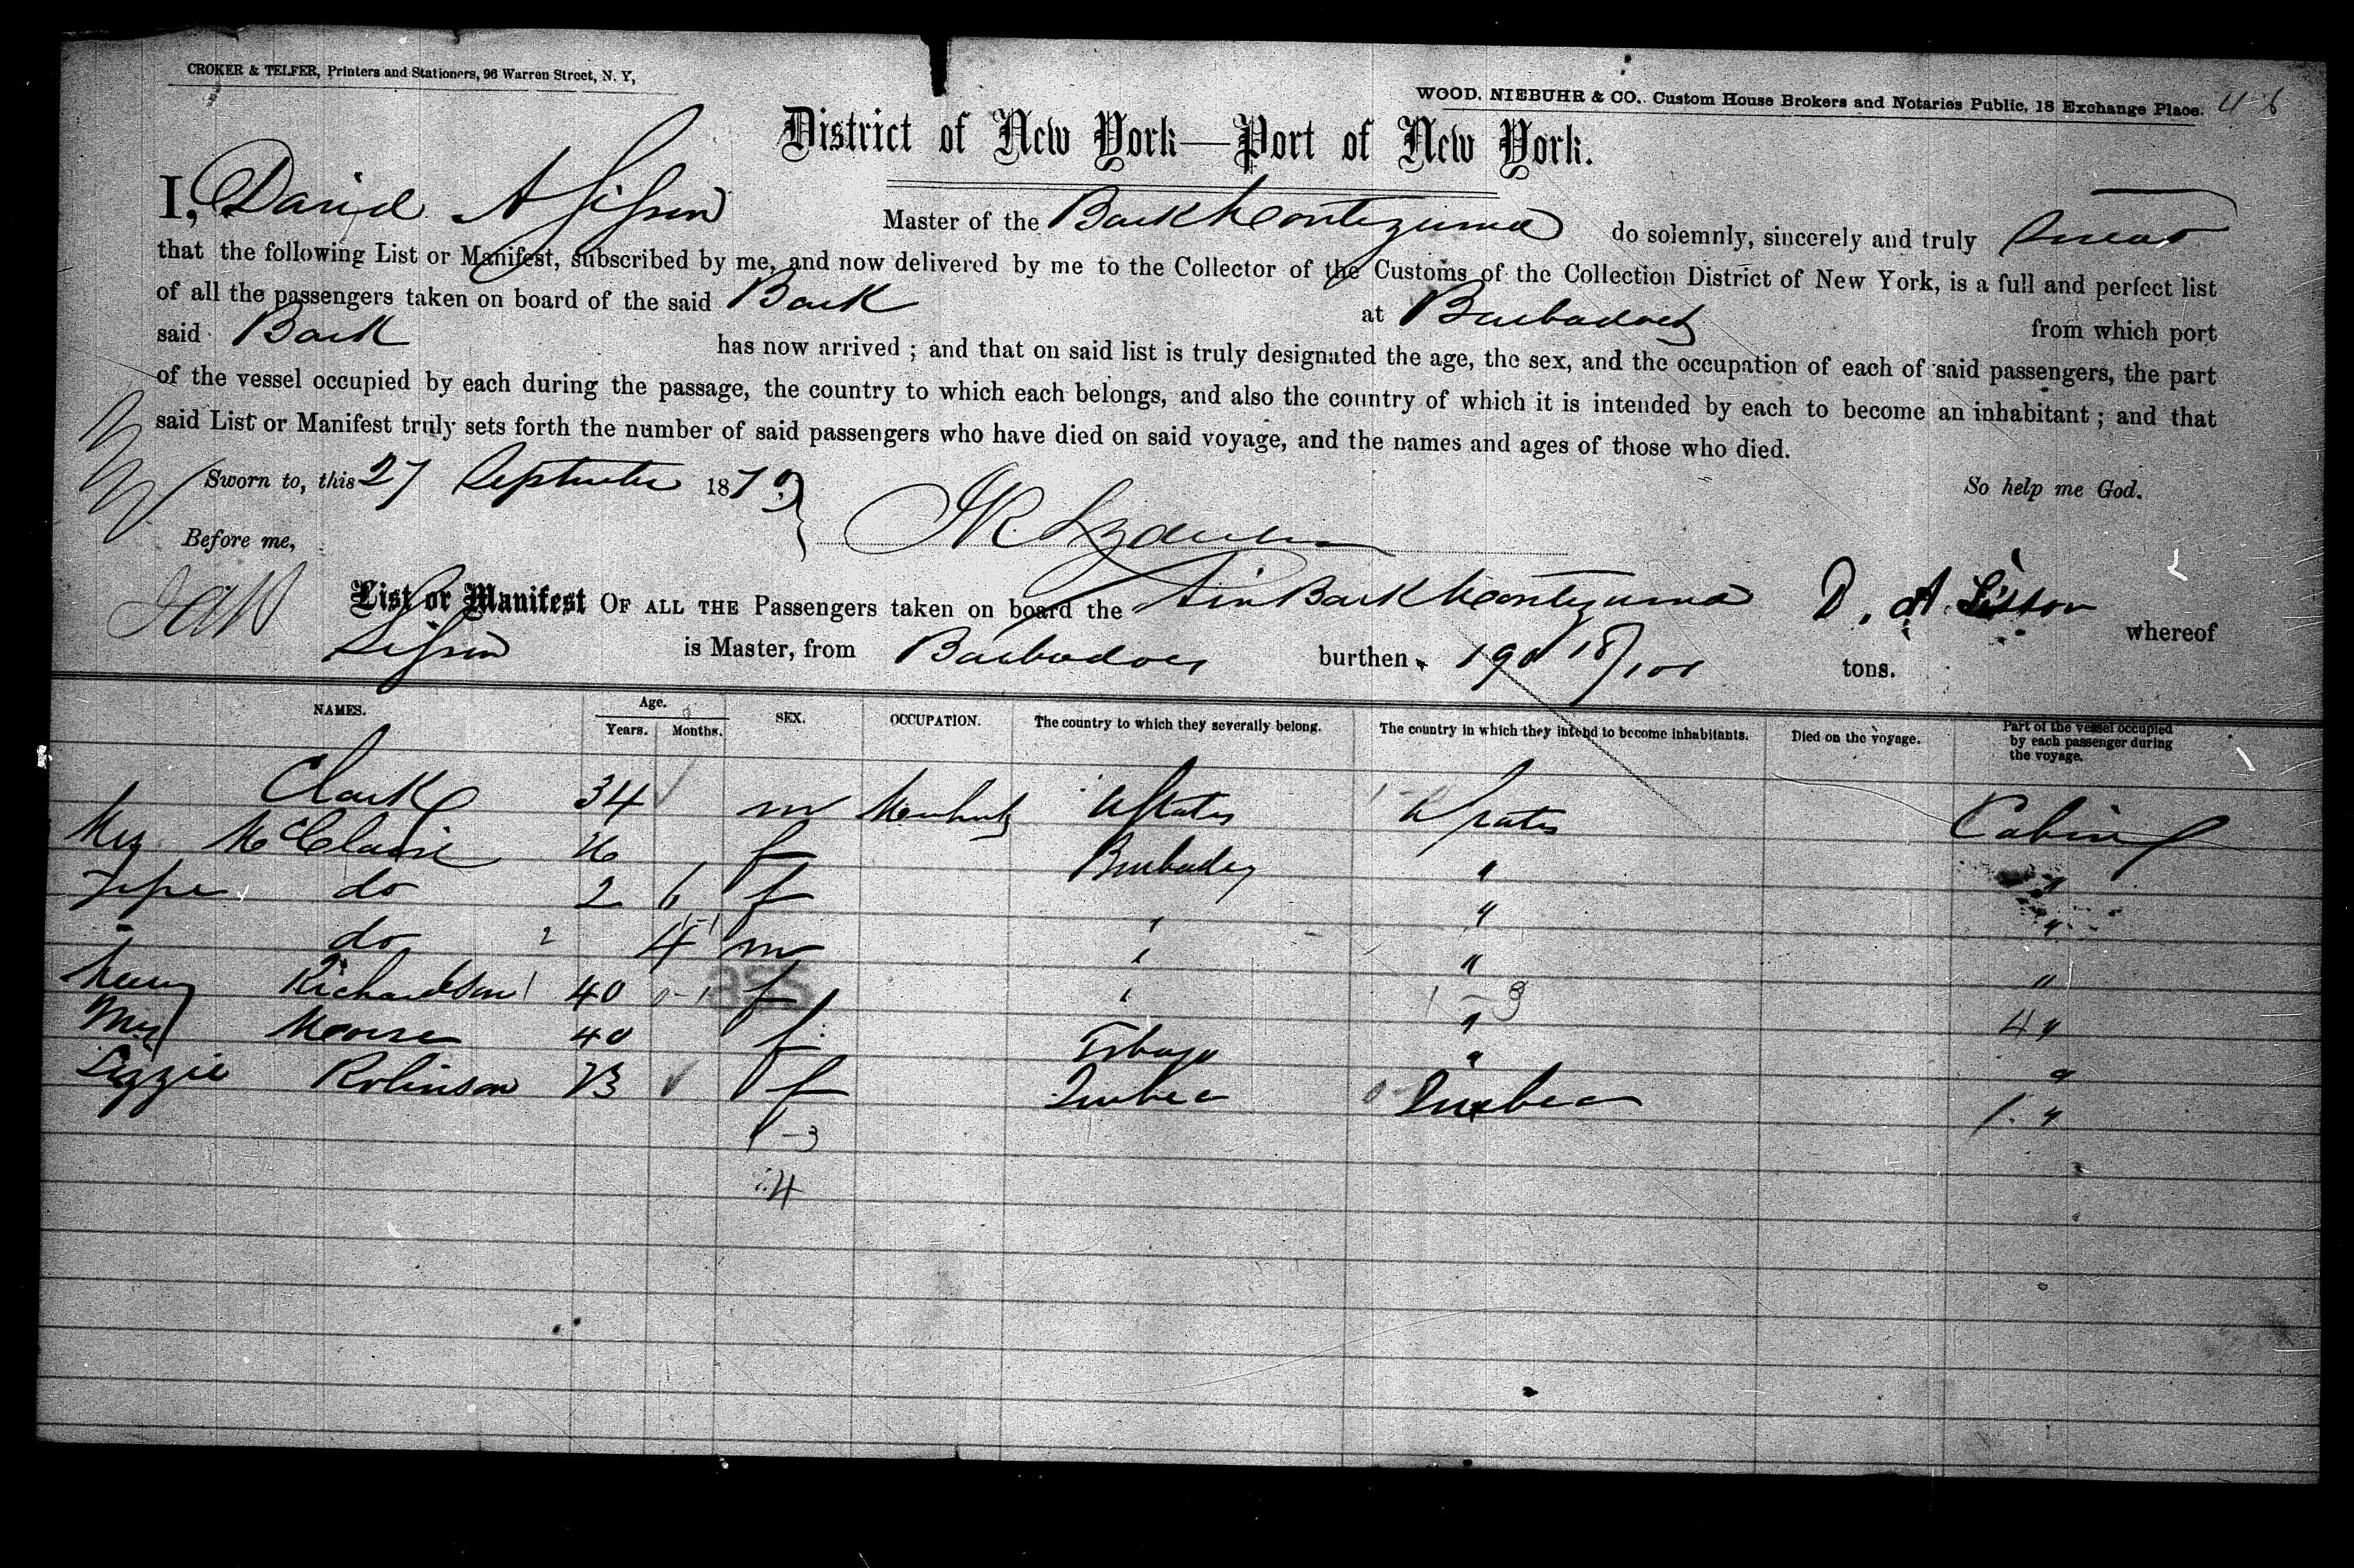 CROKER & TELFER, Printers and Stationers, 96 Warren Street, N. Y,
WOOD, NIEBUHR & CO., Custom House Brokers and Notaries Public, 18 Exchange Place.
District of New York—Port of New York.
I, David A Sisson Master of the Bark Montezuma do solemnly, sincerely and truly swear
that the following List or Manifest, subscribed by me, and now delivered by me to the Collector of the Customs of the Collection District of New York, is a full and perfect list
of all the passengers taken on board of the said Bark at Barbadoes from which port
said Bark has now arrived ; and that on said list is truly designated the age, the sex, and the occupation of each of said passengers, the part
of the vessel occupied by each during the passage, the country to which each belongs, and also the country of which it is intended by each to become an inhabitant ; and that
said List or Manifest truly sets forth the number of said passengers who have died on said voyage, and the names and ages of those who died.
Sworn to, this 27 September 187 So help me God.
Before me,
D. A. Sisson
List or Manifest OF ALL THE Passengers taken on board the Am Bark Montezuma whereof
Sisson is Master, from Barbadoes burthen 190 18/100 tons.
NAMES. Age. Years. Months. SEX. OCCUPATION. The country to which they severally belong. The country in which they intend to become inhabitants. Died on the voyage. Part of the vessel occupied by each passenger during the voyage.
Clark 34 m U States U States Cabin
McClaine 26 f Barbadoes " "
do 2 6 f " " "
do 4 m " " "
Richardson 40 f " " 4 "
Mrs 40 f Tobago " "
Lizzie Robinson 23 f Quebec Quebec 1 "
1-3
4